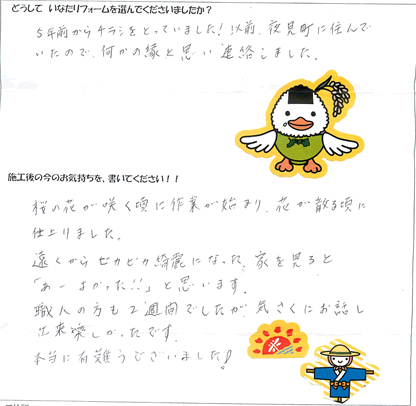 どうして いなたリフォームを選んでくださいましたか？
5年前からチラシをとっていました！以前、夜見町に住んで
いたので、何かの縁と思い連絡しました。
施工後の今のお気持ちを、書いてください！！
桜の花が咲く頃に作業が始まり、花が散る頃に
仕上りました。
遠くからピカピカ綺麗になった、家を見ると
「あーよかった!!」と思います。
職人の方も2週間でしたが、気さくにお話し
出来楽しかったです。
本当に有難うございました！